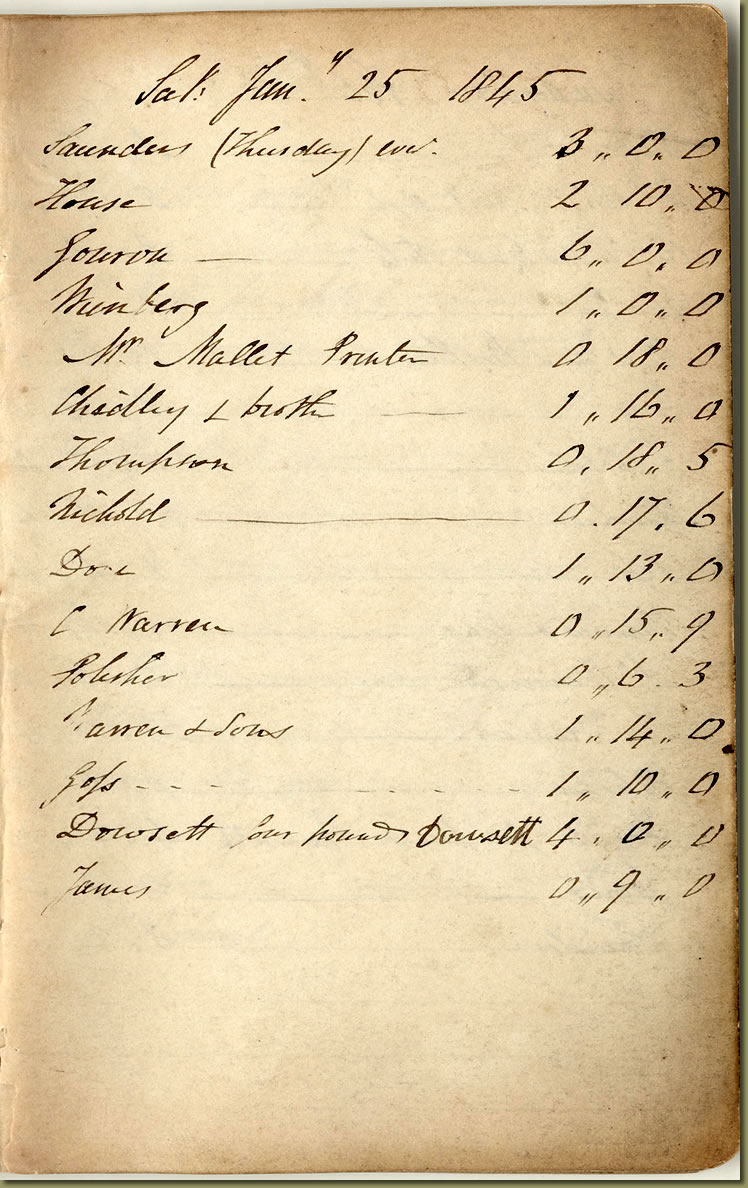 Sat: Jan.y 25 1845
Saunders (Thursday) 3 „ 0 „ 0
House 2 10 „ 0
Gouron — 6 „ 0 „ 0
1 „ 0 „ 0
Mr. Mallet Printer 0 18 „ 0
Chidley & broth — 1 „ 16 „ 0
Thompson 0 „ 18 „ 5
Nichold — 0 . 17 . 6
1 „ 13 „ 0
C Warren 0 „ 15 „ 9
Polisher 0 „ 6 . 3
Warren & Sons 1 „ 14 „ 0
Goss - - - - - - - - 1 „ 10 „ 0
Dowsett four pounds Dowsett 4 . 0 „ 0
James 0 „ 9 „ 0